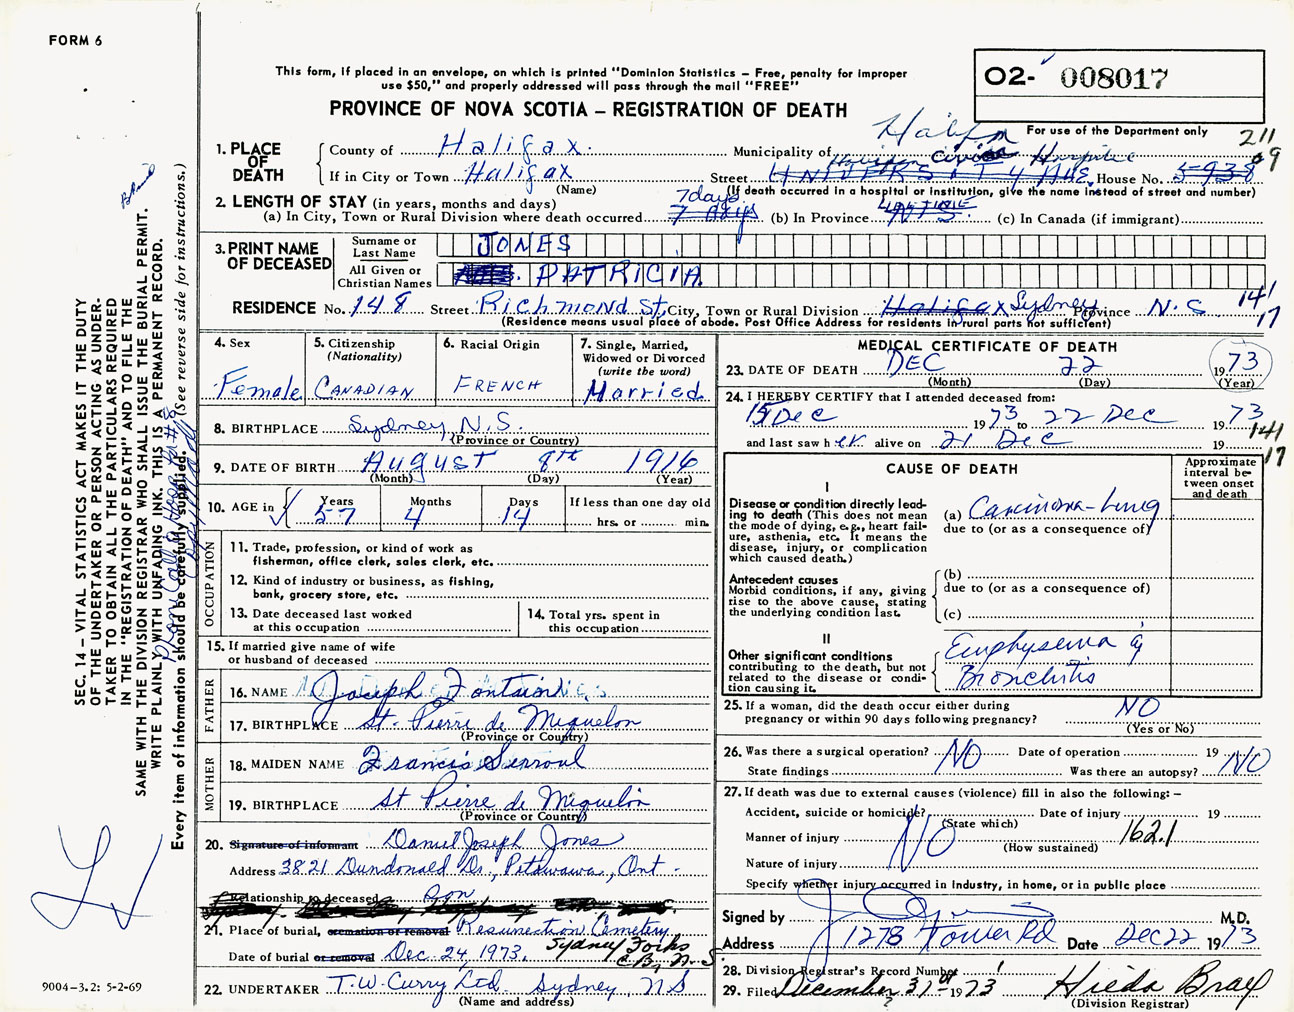 FORM 6
This form, if placed in an envelope, on which is printed "Dominion Statistics – Free, penalty for improper
use $50," and properly addressed will pass through the mail "FREE"
O2- 008017
PROVINCE OF NOVA SCOTIA – REGISTRATION OF DEATH
For use of the Department only
211
09
1. PLACE OF DEATH
County of Halifax. Municipality of Halifax
Halifax Civic Hospital
If in City or Town Halifax Street UNIVERSITY AVE, House No. 5938
(Name) (If death occurred in a hospital or institution, give the name instead of street and number)
2. LENGTH OF STAY (in years, months and days)
7 days
(a) In City, Town or Rural Division where death occurred 7 days (b) In Province LIFETIME (c) In Canada (if immigrant)
3. PRINT NAME OF DECEASED
Surname or Last Name JONES
All Given or Christian Names PATRICIA
RESIDENCE No. 148 Street Richmond St, City, Town or Rural Division Halifax Sydney Province N.S
141
17
(Residence means usual place of abode. Post Office Address for residents in rural parts not sufficient)
4. Sex Female
5. Citizenship (Nationality) CANADIAN
6. Racial Origin FRENCH
7. Single, Married, Widowed or Divorced (write the word) Married
8. BIRTHPLACE Sydney N.S.
(Province or Country)
9. DATE OF BIRTH August 8th 1916
(Month) (Day) (Year)
10. AGE in Years 57 Months 4 Days 14 If less than one day old
hrs. or min.
OCCUPATION
11. Trade, profession, or kind of work as
fisherman, office clerk, sales clerk, etc.
12. Kind of industry or business, as fishing,
bank, grocery store, etc.
13. Date deceased last worked
at this occupation
14. Total yrs. spent in
this occupation
15. If married give name of wife
or husband of deceased
FATHER
16. NAME Joseph
17. BIRTHPLACE St. Pierre de Miquelon
(Province or Country)
MOTHER
18. MAIDEN NAME Francis
19. BIRTHPLACE St Pierre de Miquelon
(Province or Country)
20. Signature of informant Daniel Joseph Jones
Address 3821 Dundonald Dr., Petawawa, Ont.
Relationship to deceased Son
21. Place of burial, cremation or removal Resurrection Cemetery
Sydney Forks
C.B., N.S.
Date of burial or removal Dec 24, 1973.
22. UNDERTAKER T.W. Curry Ltd. Sydney, NS
(Name and address)
MEDICAL CERTIFICATE OF DEATH
23. DATE OF DEATH DEC 22 1973
(Month) (Day) (Year)
24. I HEREBY CERTIFY that I attended deceased from:
15 Dec 1973 to 22 Dec 1973
and last saw her alive on 21 Dec 19
141
17
CAUSE OF DEATH
Approximate interval between onset and death
I
Disease or condition directly leading to death (This does not mean
the mode of dying, e.g., heart failure, asthenia, etc. It means the
disease, injury, or complication
which caused death.)
(a) Carcinoma-Lung
due to (or as a consequence of)
Antecedent causes
Morbid conditions, if any, giving
rise to the above cause, stating
the underlying condition last.
(b)
due to (or as a consequence of)
(c)
II
Other significant conditions
contributing to the death, but not
related to the disease or condition causing it.
Emphysema &
Bronchitis
25. If a woman, did the death occur either during
pregnancy or within 90 days following pregnancy? NO
(Yes or No)
26. Was there a surgical operation? NO Date of operation 19
State findings Was there an autopsy? NO
27. If death was due to external causes (violence) fill in also the following: –
Accident, suicide or homicide? Date of injury 19
(State which)
Manner of injury NO 1621
(How sustained)
Nature of injury
Specify whether injury occurred in industry, in home, or in public place
Signed by M.D.
Address 1278 Tower Rd Date Dec 22 1973
28. Division Registrar's Record Number
29. Filed December 31st 1973 Hilda Bray
(Division Registrar)
SEC. 14 – VITAL STATISTICS ACT MAKES IT THE DUTY
OF THE UNDERTAKER OR PERSON ACTING AS UNDERTAKER TO OBTAIN ALL THE PARTICULARS REQUIRED
IN THE "REGISTRATION OF DEATH" AND TO FILE THE
SAME WITH THE DIVISION REGISTRAR WHO SHALL ISSUE THE BURIAL PERMIT.
WRITE PLAINLY WITH UNFADING INK. THIS IS A PERMANENT RECORD.
Every item of information should be carefully supplied. (See reverse side for instructions.)
9004-3.2: 5-2-69